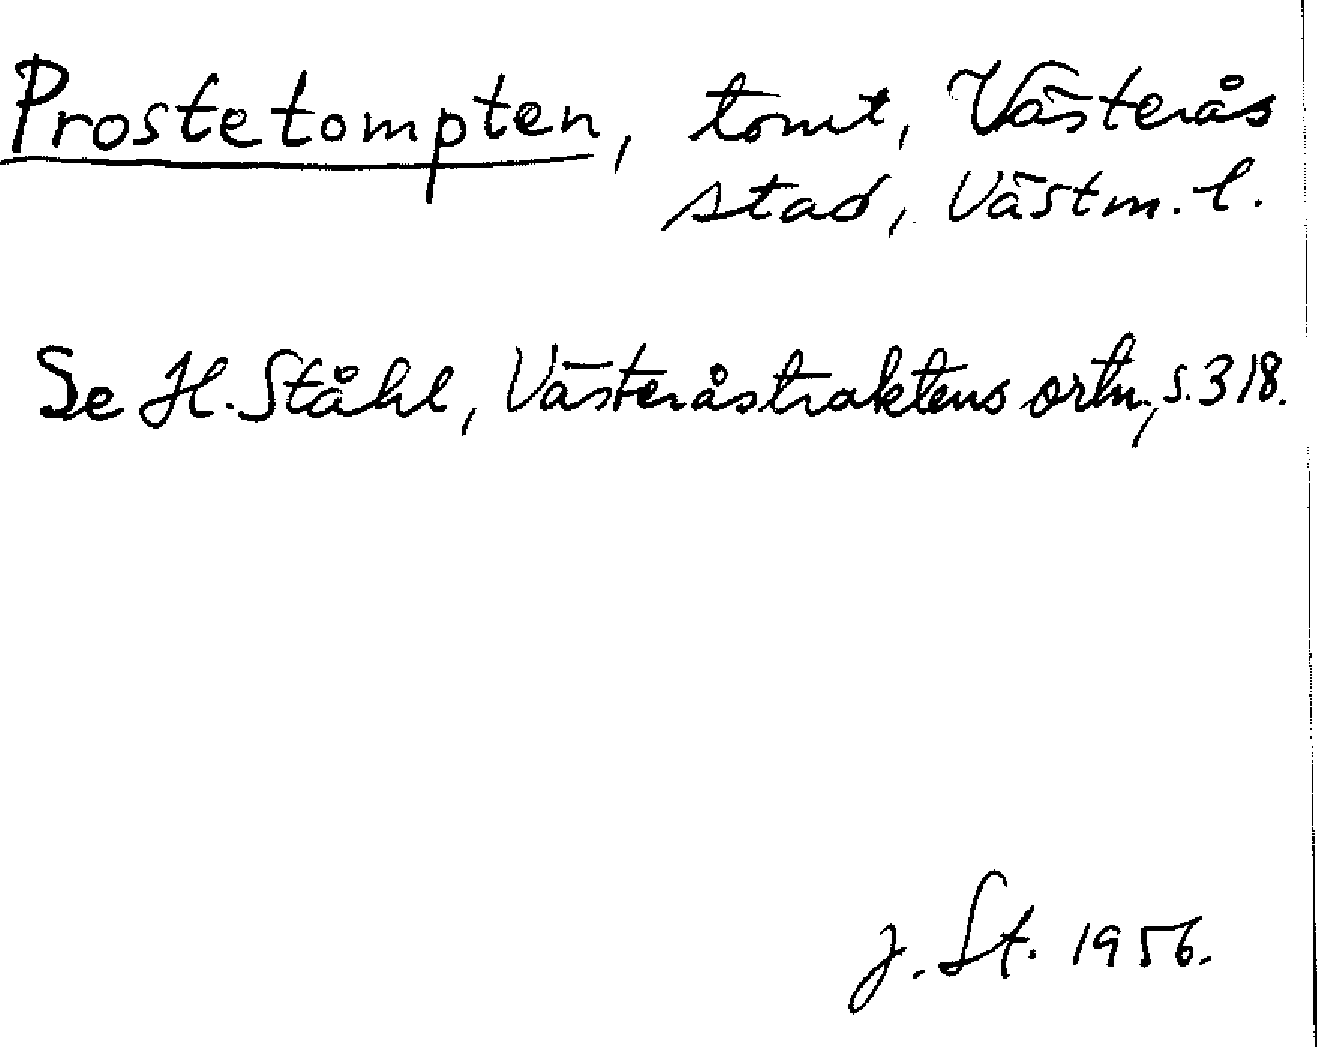 Prostetompten, tomt, Västerås
stad, Västm. l.
Se H. Ståhl, Västeråstraktens ortn., s. 318.
J. St. 1956.